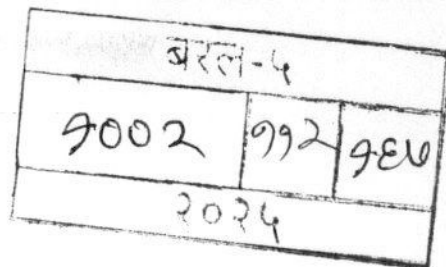 बरल-५
१००२ ११२ १६७
२०२५